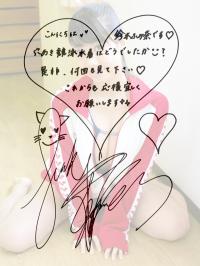 こんにちは♡ 鈴木ふみ奈です♡
競泳水着はどうでしたかじ?
是非、何回も見て下さい♡
これからも応援宜しく
お願いします